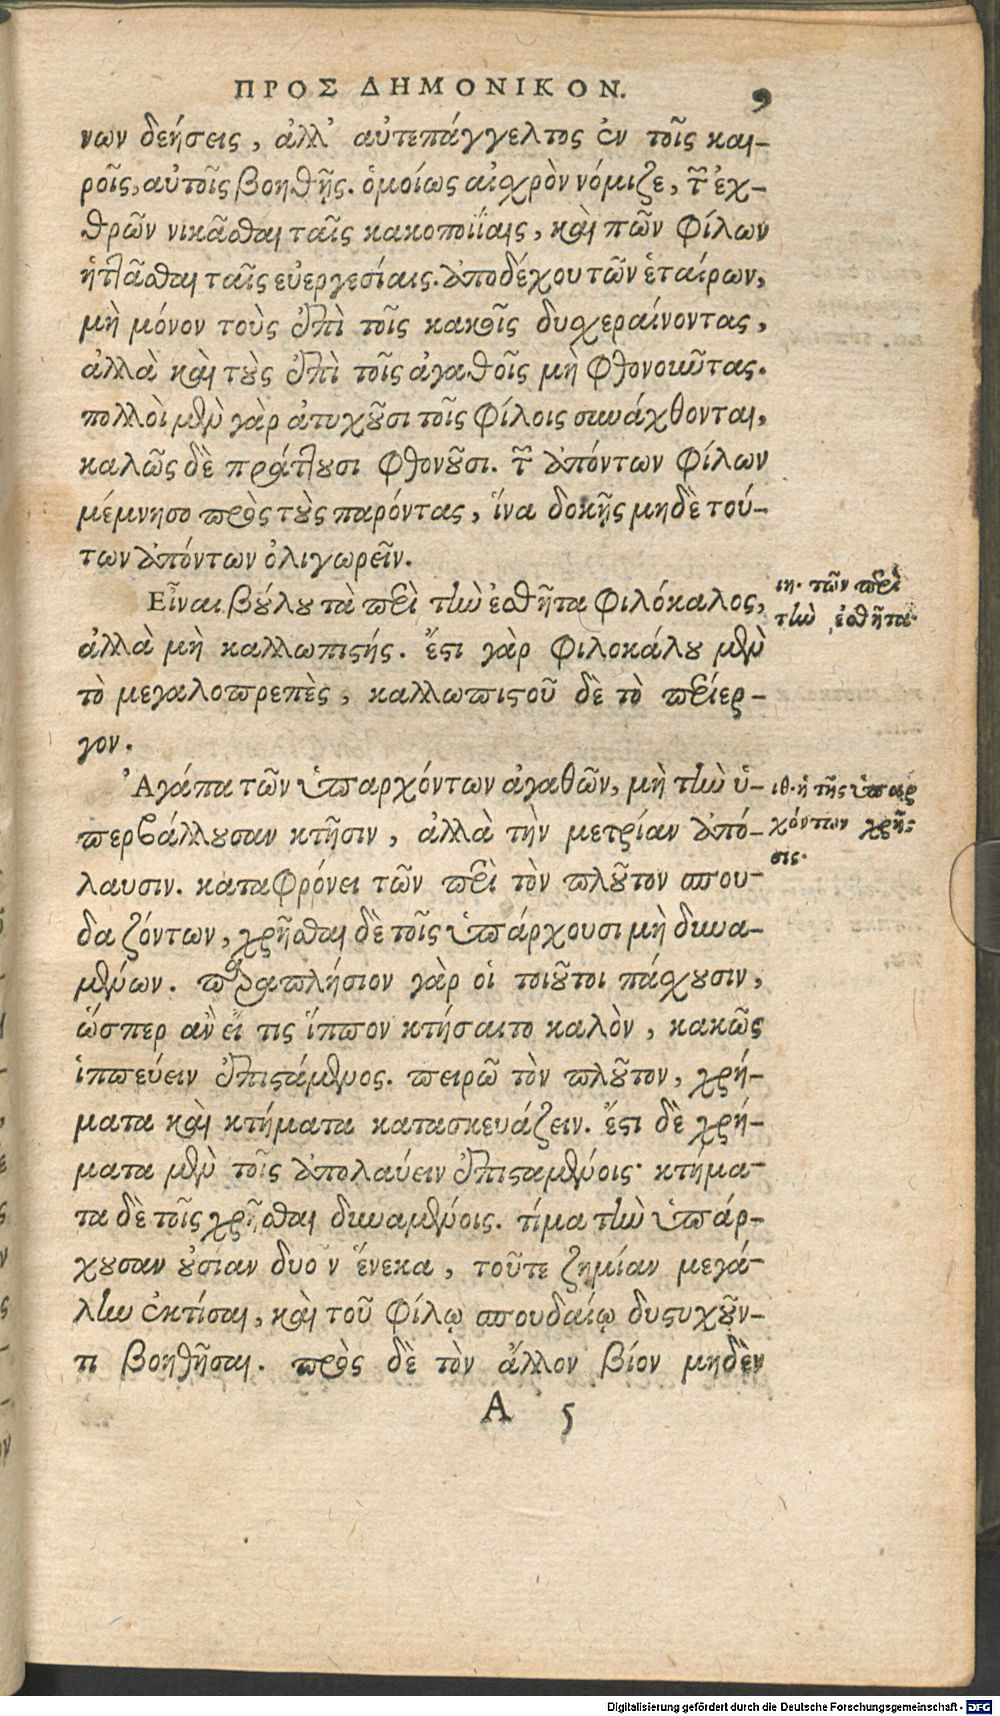 ΠΡΟΣ ΔΗΜΟΝΙΚΟΝ. 9
νων δεήσεις, ἀλλ' αὐτεπάγγελτος ἐν τοῖς και-
ροῖς, αὐτοῖς βοηθῇς. ὁμοίως αἰσχρὸν νόμιζε, τῶν ἐχ-
θρῶν νικᾶσθαι ταῖς κακοποιΐαις, καὶ τῶν φίλων
ἡττᾶσθαι ταῖς εὐεργεσίαις. ἀποδέχου τῶν ἑταίρων,
μὴ μόνον τοὺς ἐπὶ τοῖς κακοῖς δυσχεραίνοντας,
ἀλλὰ καὶ τοὺς ἐπὶ τοῖς ἀγαθοῖς μὴ φθονοῦντας.
πολλοὶ μὲν γὰρ ἀτυχοῦσι τοῖς φίλοις συνάχθονται,
καλῶς δὲ πράττουσι φθονοῦσι. τῶν ἀπόντων φίλων
μέμνησο πρὸς τοὺς παρόντας, ἵνα δοκῇς μηδὲ τού-
των ἀπόντων ὀλιγωρεῖν.
Εἶναι βούλου τὰ περὶ τὴν ἐσθῆτα φιλόκαλος,
ἀλλὰ μὴ καλλωπιστής. ἔστι γὰρ φιλοκάλου μὲν
τὸ μεγαλοπρεπὲς, καλλωπιστοῦ δὲ τὸ περίερ-
γον.
ιη. τῶν περὶ
τὴν ἐσθῆτα.
Ἀγάπα τῶν ὑπαρχόντων ἀγαθῶν, μὴ τὴν ὑ-
περβάλλουσαν κτῆσιν, ἀλλὰ τὴν μετρίαν ἀπό-
λαυσιν. καταφρόνει τῶν περὶ τὸν πλοῦτον σπου-
δαζόντων, χρῆσθαι δὲ τοῖς ὑπάρχουσι μὴ δυνα-
μένων. παραπλήσιον γὰρ οἱ τοιοῦτοι πάσχουσιν,
ὥσπερ ἂν εἴ τις ἵππον κτήσαιτο καλὸν, κακῶς
ἱππεύειν ἐπιστάμενος. πειρῶ τὸν πλοῦτον, χρή-
ματα καὶ κτήματα κατασκευάζειν. ἔστι δὲ χρή-
ματα μὲν τοῖς ἀπολαύειν ἐπισταμένοις· κτήμα-
τα δὲ τοῖς χρῆσθαι δυναμένοις. τίμα τὴν ὑπάρ-
χουσαν οὐσίαν δυοῖν ἕνεκα, τοῦτε ζημίαν μεγά-
λην ἐκτίσαι, καὶ τοῦ φίλῳ σπουδαίῳ δυστυχοῦν-
τι βοηθῆσαι. πρὸς δὲ τὸν ἄλλον βίον μηδὲν
ιθ. ἡ τῆς ὑπαρ
χόντων χρῆ-
σις.
A 5
Digitalisierung gefördert durch die Deutsche Forschungsgemeinschaft - DFG